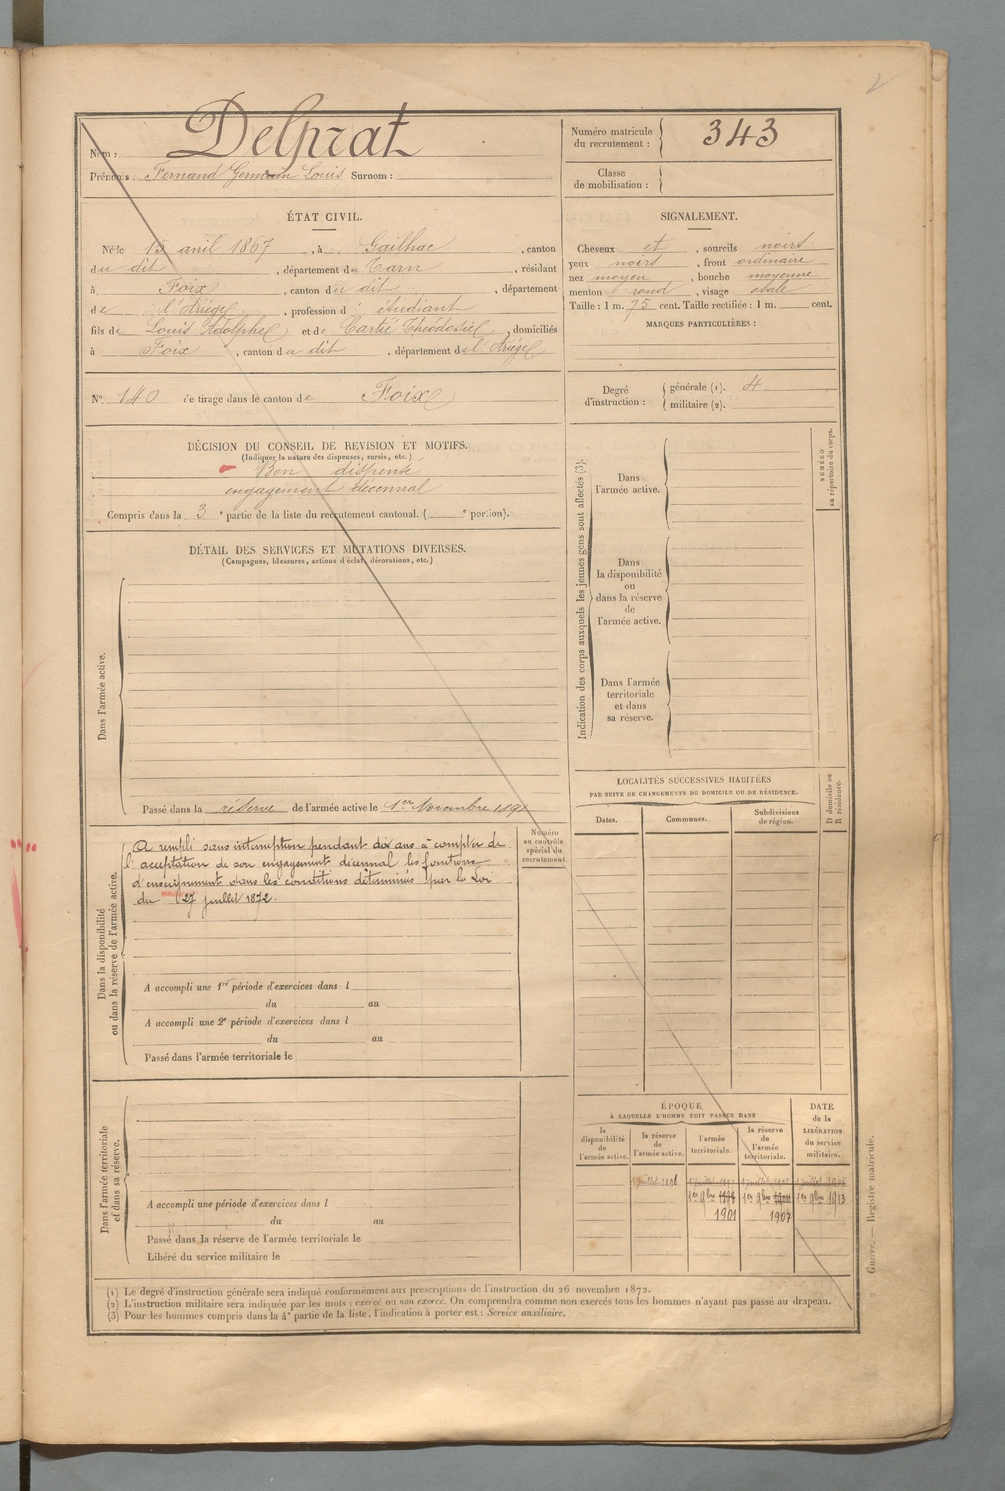 Nom : Delprat
Prénoms : Fernand Germain Louis Surnom :
Numéro matricule
du recrutement : 343
Classe
de mobilisation :
ÉTAT CIVIL.
Né le 15 avril 1867, à Gailhac, canton
du dit, département du Tarn, résidant
à Foix, canton du dit, département
de l'Ariège, profession d étudiant
fils de Louis Adolphe et de Cartié Théodosie, domiciliés
à Foix, canton du dit, département de l'Ariège
SIGNALEMENT.
Cheveux et, sourcils noirs
yeux noirs, front ordinaire
nez moyen, bouche moyenne
menton rond, visage ovale
Taille : 1 m. 75 cent. Taille rectifiée : 1 m. cent.
MARQUES PARTICULIÈRES :
N° 140 de tirage dans le canton de Foix
Degré
d'instruction :
générale (1). 4
militaire (2).
DÉCISION DU CONSEIL DE REVISION ET MOTIFS.
(Indiquer la nature des dispenses, sursis, etc.)
Bon dispensé
engagement décennal
Compris dans la 3e partie de la liste du recrutement cantonal. ( e portion).
DÉTAIL DES SERVICES ET MUTATIONS DIVERSES.
(Campagnes, blessures, actions d'éclat, décorations, etc.)
Dans l'armée active.
Passé dans la réserve de l'armée active le 1er Novembre
Indication des corps auxquels les jeunes gens sont affectés (3).
Dans
l'armée active.
Dans
la disponibilité
ou
dans la réserve
de
l'armée active.
Dans l'armée
territoriale
et dans
sa réserve.
NUMÉRO
au répertoire du corps.
LOCALITÉS SUCCESSIVES HABITÉES
PAR SUITE DE CHANGEMENTS DE DOMICILE OU DE RÉSIDENCE.
D domicile ou
R résidence.
Dates.
Communes.
Subdivisions
de région.
Numéro
au contrôle
spécial du
recrutement.
Dans la disponibilité
ou dans la réserve de l'armée active.
A rempli sans interruption pendant dix ans à compter de
l'acceptation de son engagement décennal les fonctions
d'enseignement dans les conditions déterminées par la Loi
du 27 juillet 1872.
A accompli une 1re période d'exercices dans l
du au
A accompli une 2e période d'exercices dans l
du au
Passé dans l'armée territoriale le
Dans l'armée territoriale
et dans sa réserve.
A accompli une période d'exercices dans l
du au
Passé dans la réserve de l'armée territoriale le
Libéré du service militaire le
ÉPOQUE
À LAQUELLE L'HOMME DOIT PASSER DANS
la
disponibilité
de
l'armée active.
la réserve
de
l'armée active.
l'armée
territoriale.
la réserve
de
l'armée
territoriale.
DATE
de la
LIBÉRATION
du service
militaire.
1er 9bre 1898 1er 9bre 1er 9bre 1913
1901 1907
(1) Le degré d'instruction générale sera indiqué conformément aux prescriptions de l'instruction du 26 novembre 1872.
(2) L'instruction militaire sera indiquée par les mots : exercé ou non exercé. On comprendra comme non exercés tous les hommes n'ayant pas passé au drapeau.
(3) Pour les hommes compris dans la 4e partie de la liste, l'indication à porter est : Service auxiliaire.
Guerre. — Registre matricule.